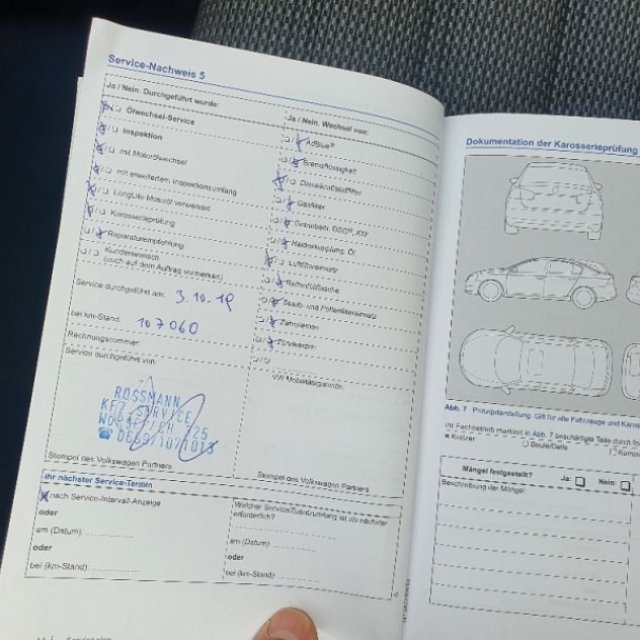 Service-Nachweis 5
Ja / Nein. Durchgeführt wurde:
Ölwechsel-Service
Inspektion
mit Motorölwechsel
mit erweitertem Inspektionsumfang
LongLife Motoröl verwendet
Karosserieprüfung
Reparaturempfehlung
Kundenwunsch
(auch auf dem Auftrag vorhanden)
Service durchgeführt am: 3.10.19
bei km-Stand: 107060
Rechnungsnummer:
Service durchgeführt von:
ROSSMANN
KFZ-SERVICE
Stempel des Volkswagen Partners
Ja / Nein. Wechsel von:
AdBlue®
Bremsflüssigkeit
Dieselkraftstofffilter
Gasfilter
Getriebeöl, DSG®, ATF
Haldexkupplung, Öl
Luftfiltereinsatz
Reifenfüllflasche
Staub- und Pollenfiltereinsatz
Zahnriemen
Zündkerzen
VW Mobilitätsgarantie:
Stempel des Volkswagen Partners
Ihr nächster Service-Termin
nach Service-Intervall-Anzeige
oder
am (Datum):
oder
bei (km-Stand):
Welcher Service/Zusatzumfang ist als nächster
erforderlich?
am (Datum):
oder
bei (km-Stand):
Dokumentation der Karosserieprüfung
Abb. 7 Prinzipdarstellung. Gilt für alle Fahrzeuge und
Ihr Fachbetrieb markiert in Abb. 7 beschädigte Teile durch
Kratzer
Beule/Delle
Mängel festgestellt? Ja: Nein:
Beschreibung der Mängel: